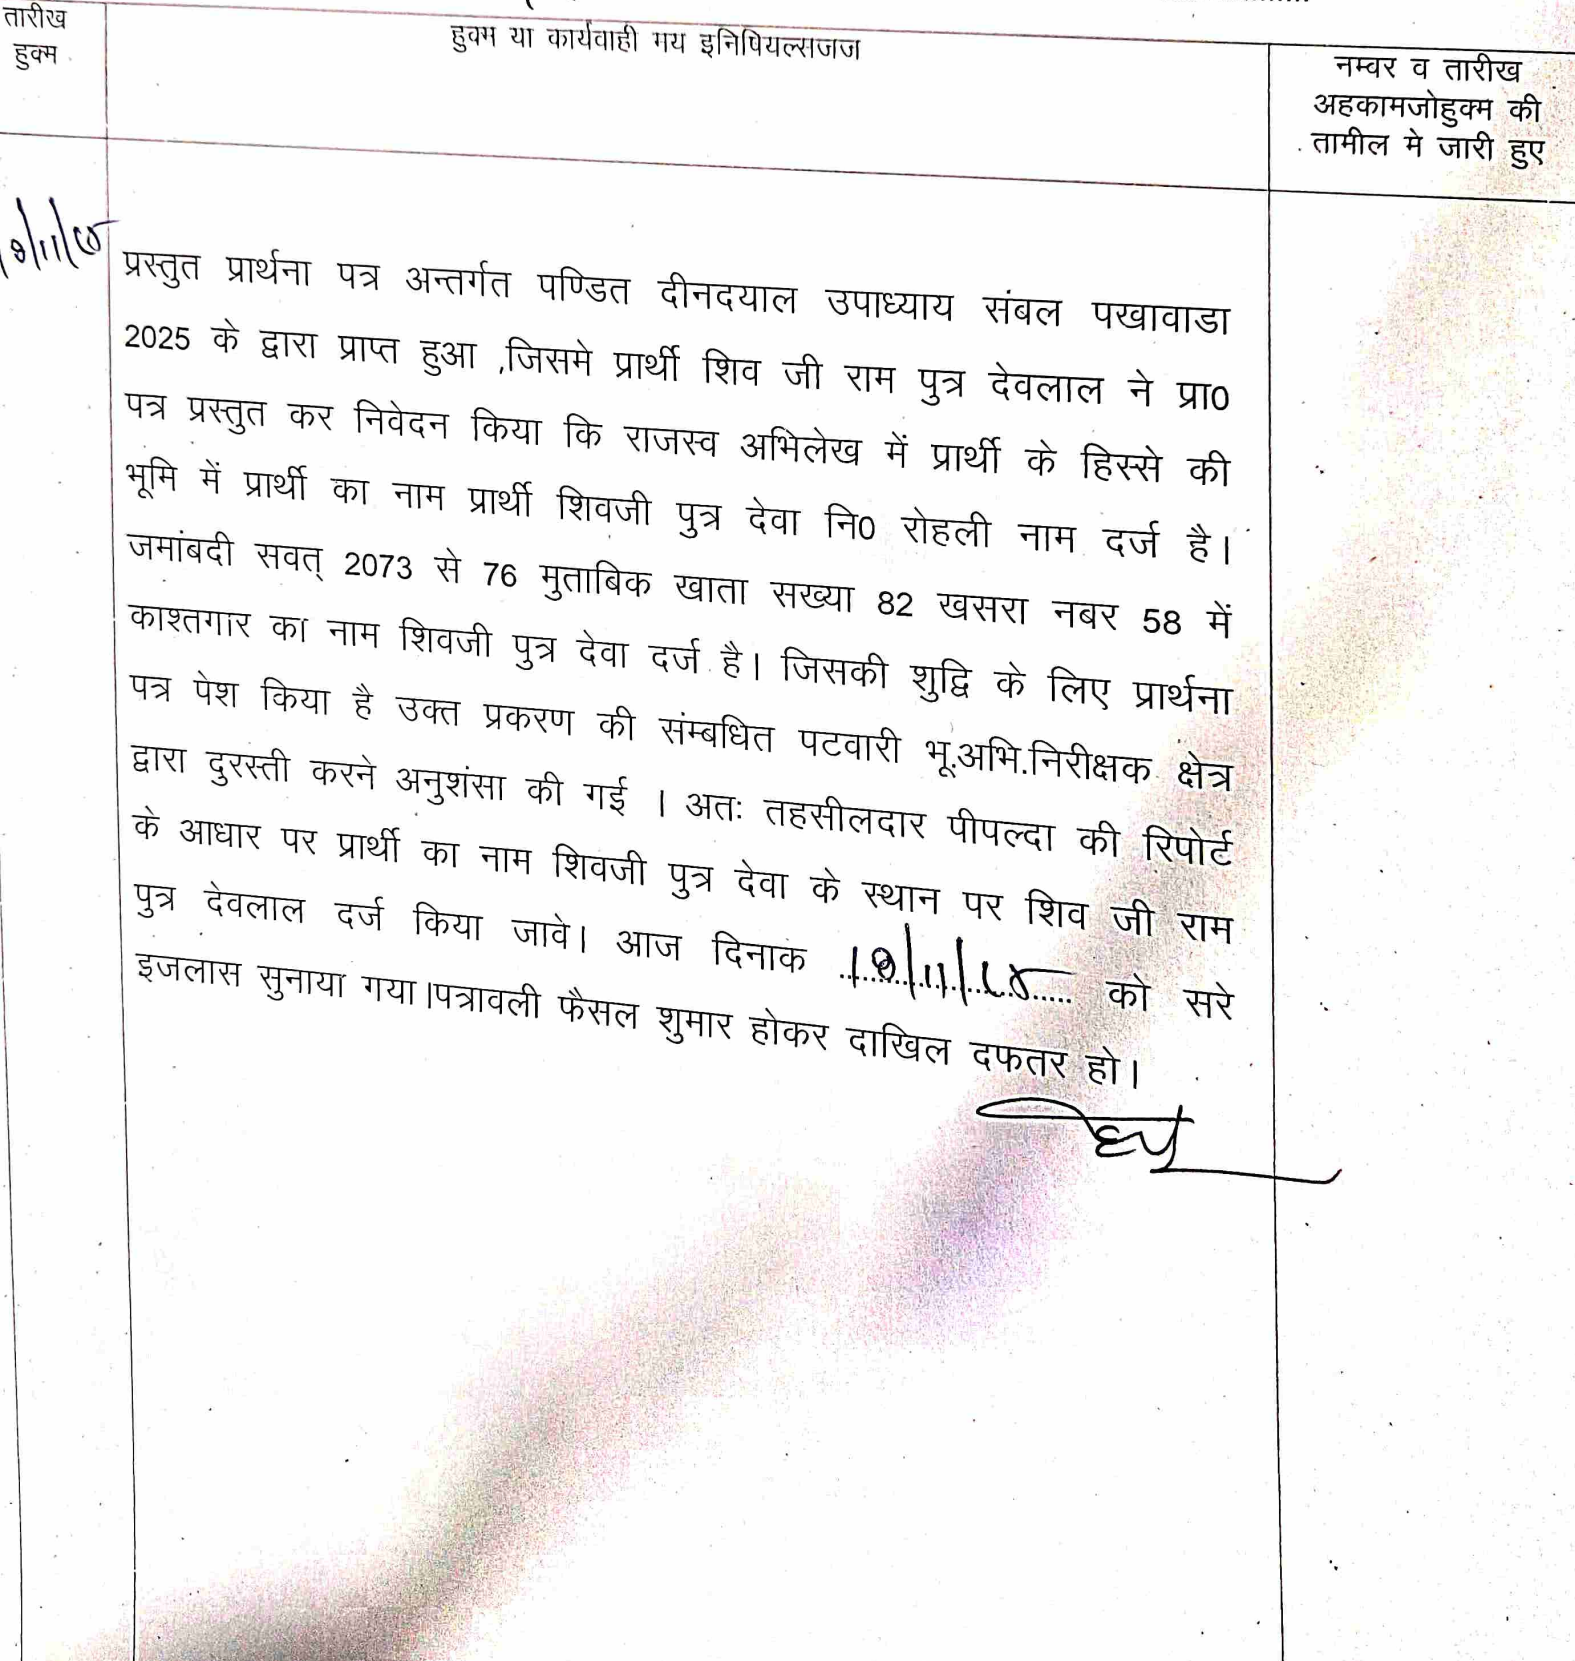 तारीख
हुक्म
हुक्म या कार्यवाही मय इनिषियल्सजज
नम्वर व तारीख
अहकामजोहुक्म की
तामील मे जारी हुए
प्रस्तुत प्रार्थना पत्र अन्तर्गत पण्डित दीनदयाल उपाध्याय संबल पखावाडा
2025 के द्वारा प्राप्त हुआ ,जिसमे प्रार्थी शिव जी राम पुत्र देवलाल ने प्रा0
पत्र प्रस्तुत कर निवेदन किया कि राजस्व अभिलेख में प्रार्थी के हिस्से की
भूमि में प्रार्थी का नाम प्रार्थी शिवजी पुत्र देवा नि0 रोहली नाम दर्ज है।
जमांबदी सवत् 2073 से 76 मुताबिक खाता सख्या 82 खसरा नबर 58 में
काश्तगार का नाम शिवजी पुत्र देवा दर्ज है। जिसकी शुद्वि के लिए प्रार्थना
पत्र पेश किया है उक्त प्रकरण की संम्बधित पटवारी भू.अभि.निरीक्षक क्षेत्र
द्वारा दुरस्ती करने अनुशंसा की गई । अतः तहसीलदार पीपल्दा की रिपोर्ट
के आधार पर प्रार्थी का नाम शिवजी पुत्र देवा के स्थान पर शिव जी राम
पुत्र देवलाल दर्ज किया जावे। आज दिनाक को सरे
इजलास सुनाया गया।पत्रावली फैसल शुमार होकर दाखिल दफतर हो।